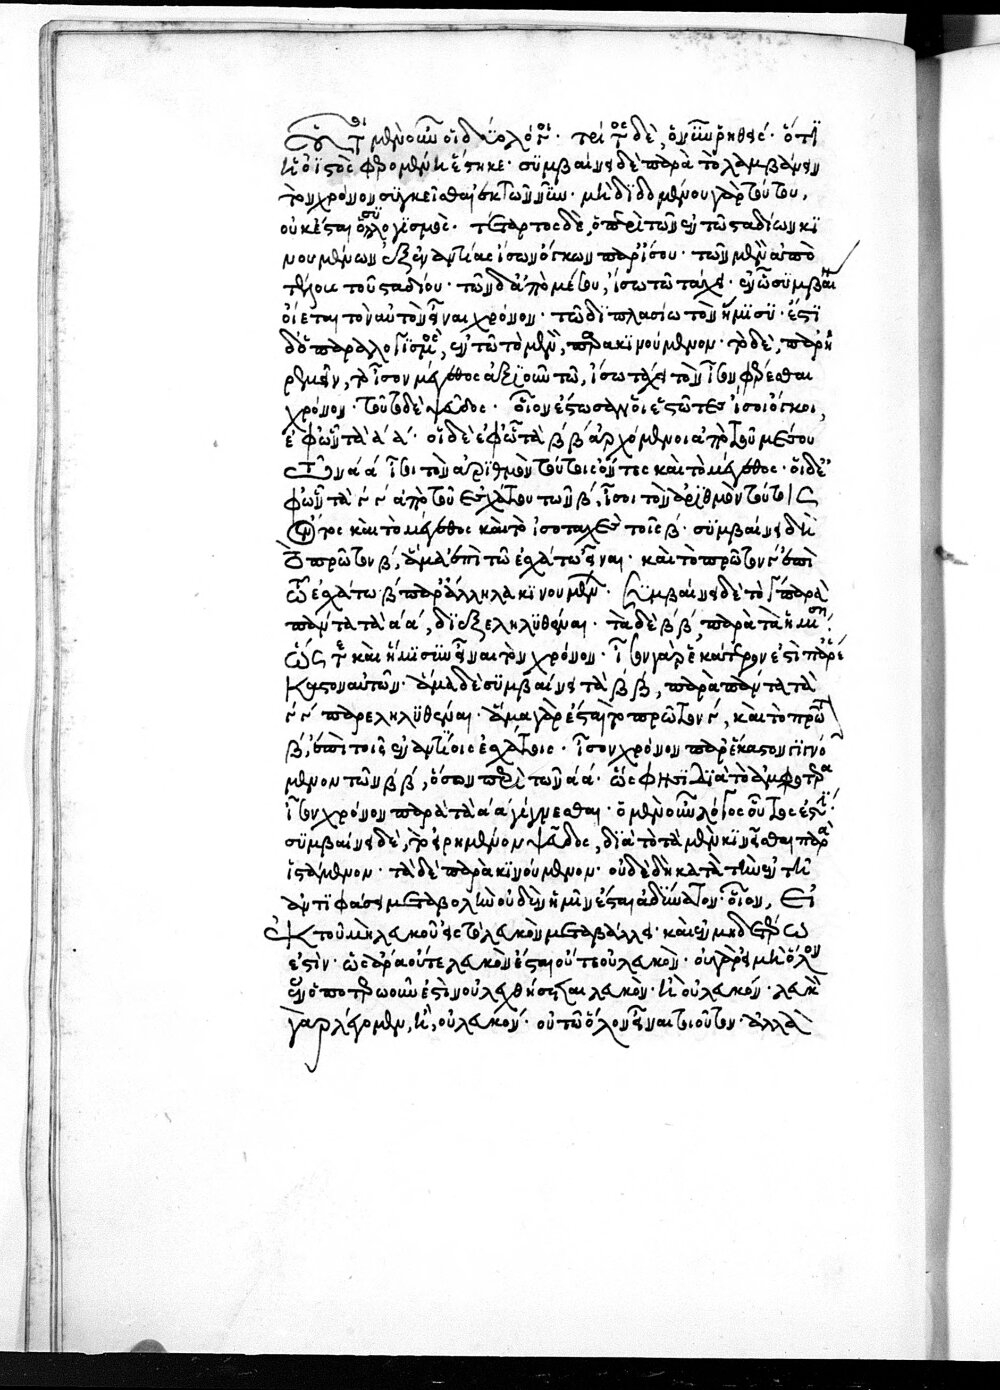 οὗτοι μὲν οὖν οἱ δύο λόγοι. τρίτος δὲ, ὁ νῦν ῥηθεὶς. ὅτι
ἡ ὀϊστὸς φερομένη ἕστηκε. συμβαίνει δὲ παρὰ τὸ λαμβάνειν
τὸν χρόνον συγκεῖσθαι ἐκ τῶν νῦν. μὴ διδομένου γὰρ τούτου,
οὐκ ἔσται ὁ συλλογισμός. τέταρτος δὲ, ὁ περὶ τῶν ἐν τῶ σταδίω κι
νουμένων ἐξ ἐναντίας ἴσων ὄγκων παρ' ἴσους. τῶν μὲν ἀπὸ
τέλους τοῦ σταδίου. τῶν δ' ἀπὸ μέσου, ἴσω τάχει. ἐν ὧ συμβαίνειν
οἴεται τὸν αὐτὸν εἶναι χρόνον. τῶ διπλασίω τὸν ἥμισυ. ἔστι
δ' ὁ παραλογισμὸς, ἐν τῶ τὸ μὲν, παρὰ κινούμενον. τὸ δὲ, παρ' ἠ
ρεμοῦν, τὸ ἴσον μέγεθος ἀξιοῦν τῶ, ἴσω τάχει τὸν ἴσον φέρεσθαι
χρόνον. τοῦτο δὲ ψεῦδος. οἷον ἔστωσαν οἱ ἑστῶτες ἴσοι ὄγκοι,
ἐφ' ὧν τὰ α α. οἱ δὲ ἐφ' ὧν τὰ β β ἀρχόμενοι ἀπὸ τοῦ μέσου
τῶν α α ἴσοι τὸν ἀριθμὸν τούτοις ὄντες καὶ τὸ μέγεθος. οἱ δὲ ἐ
φ' ὧν τὰ γ γ ἀπὸ τοῦ ἐσχάτου τῶν β, ἴσοι τὸν ἀριθμὸν τούτοις
ὄντες καὶ τὸ μέγεθος καὶ τὸ ἰσοταχεῖς τοῖς β. συμβαίνει δὴ
τὸ πρῶτον β, ἅμα ἐπὶ τῶ ἐσχάτω εἶναι. καὶ τὸ πρῶτον γ ἐπὶ
τῶ ἐσχάτω β παρ' ἄλληλα κινουμένων. συμβαίνει δὲ τὸ γ παρὰ
πάντα τὰ α α, διεξεληλυθέναι. τὰ δὲ β β, παρὰ τὰ ἡμίση.
ὥστε καὶ ἥμισυν εἶναι τὸν χρόνον. ἴσον γὰρ ἑκάτερον ἐστὶ παρ' ἕ
καστον αὐτῶν. ἅμα δὲ συμβαίνει τὰ β β, παρὰ πάντα τὰ
γ γ παρεληλυθέναι. ἅμα γὰρ ἔσται τὸ πρῶτον γ, καὶ τὸ πρῶτον
β, ἐπὶ τοῖς ἐναντίοις ἐσχάτοις. ἴσον χρόνον παρ' ἕκαστον γινό
μενον τῶν β β, ὅσον περὶ τῶν α α. ὥς φησι διὰ τὸ ἀμφότερα
ἴσον χρόνον παρὰ τὰ α α γίγνεσθαι. ὁ μὲν οὖν λόγος οὗτος ἐστίν.
συμβαίνει δὲ, τὸ εἰρημένον ψεῦδος, διὰ τὸ τὰ μὲν κινεῖσθαι παρὰ
ἱστάμενον. τὰ δὲ παρὰ κινούμενον. οὐδὲ δὴ κατὰ τὴν ἐν τῆ
ἀντιφάσει μεταβολὴν οὐδὲν ἡμῖν ἔσται ἀδύνατον. οἷον, εἰ
ἐκ τοῦ μὴ λευκοῦ εἰς τὸ λευκὸν μεταβάλλει. καὶ ἐν μηδετέρω
ἐστὶν. ὡς ἄρα οὔτε λευκὸν ἔσται οὔτε οὐ λευκόν. οὐ γὰρ εἰ μὴ ὅλον
ἐν ὁποτέρω οὖν ἐστὶν οὐ λεχθήσεται λευκὸν. ἢ οὐ λευκόν. λευκὸν
γὰρ λέγομεν, ἢ, οὐ λευκόν. οὐ τῶ ὅλον εἶναι τοιοῦτον. ἀλλὰ